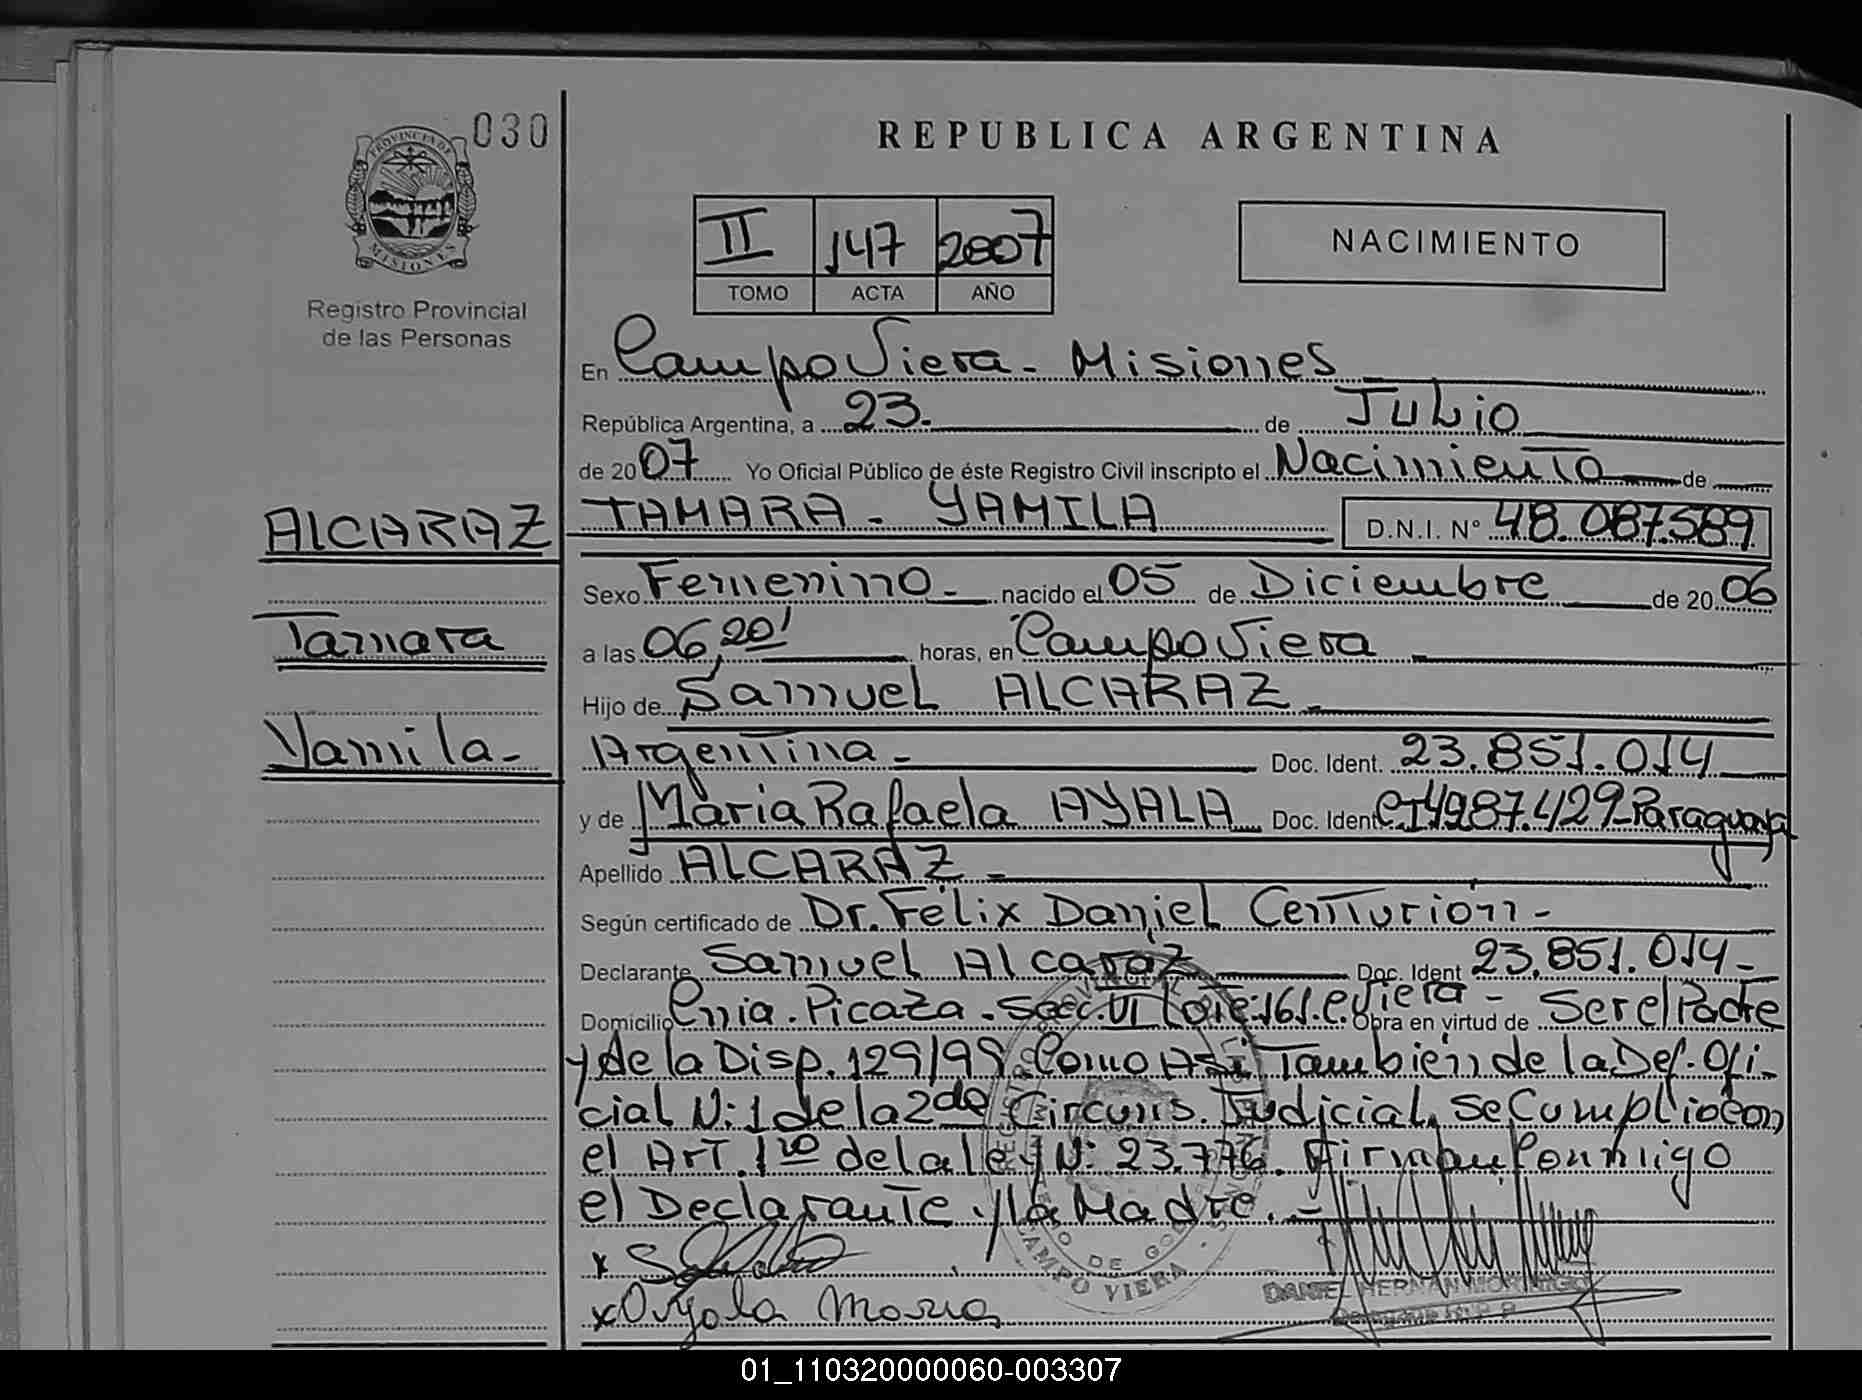 030
PROVINCIA DE
MISIONES
Registro Provincial
de las Personas
REPUBLICA ARGENTINA
II 147 2007
TOMO ACTA AÑO
NACIMIENTO
En Campo Viera - Misiones
República Argentina, a 23- de Julio
de 2007 Yo Oficial Público de éste Registro Civil inscripto el Nacimiento de
ALCARAZ TAMARA - YAMILA D.N.I. Nº 48.087.589
Sexo Femenino - nacido el 05 de Diciembre de 2006
Tamara a las 06,20' horas, en Campo Viera
Hijo de Samuel ALCARAZ -
Yamila - Argentina - Doc. Ident. 23.851.014
y de Maria Rafaela AYALA Doc. Ident CI 4987.429-Paraguaya
Apellido ALCARAZ -
Según certificado de Dr. Félix Daniel Centurión -
Declarante Samuel Alcaraz Doc. Ident 23.851.014-
Domicilio Cnia. Picaza - Secc. VI Lote: 161. C. Viera - Obra en virtud de Ser el Padre
y de la Disp. 129/99 Como Así También de la Def. Ofi-
cial N: 1 de la 2da Circuns. Judicial, se Cumplió con
el Art. 1ro de la ley N: 23.776. Firman Conmigo
el Declarante y la Madre. -
CAMPO VIERA
x
x Ayala Maria
DANIEL HERNAN
01_110320000060-003307